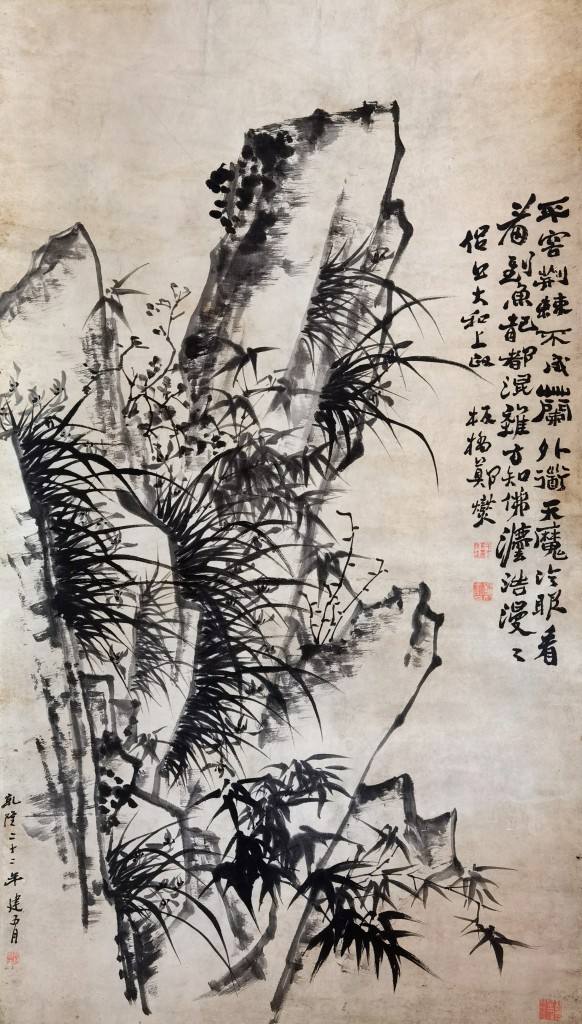 不容荆棘不成蘭外道天魔冷眼看
着到魚龍都混雜方知佛法浩漫〻
侶松大和上正
板橋鄭燮
乾隆二十二年建五月